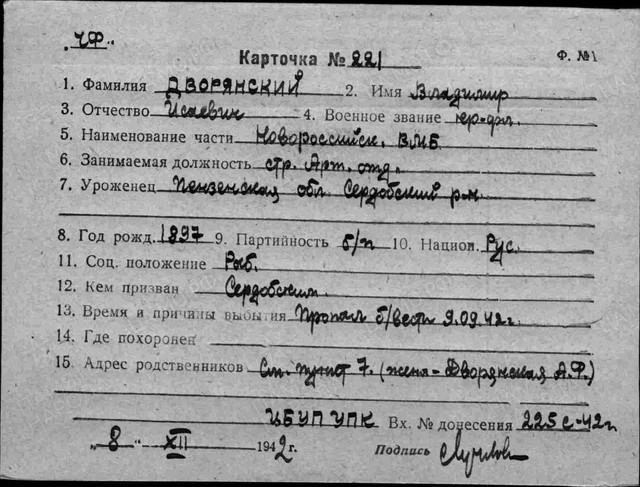 „ЧФ“
Карточка № 221 Ф. №1
1. Фамилия ДВОРЯНСКИЙ 2. Имя Владимир
3. Отчество Исаевич 4. Военное звание кр-фл.
5. Наименование части Новороссийск. ВМБ
6. Занимаемая должность стр. Арт. отд.
7. Уроженец Пензенская обл Сердобский р-н
8. Год рожд. 1897 9. Партийность б/п 10. Национ. Рус.
11. Соц. положение Раб.
12. Кем призван Сердобским
13. Время и причины выбытия Пропал б/вести 9.09.42 г.
14. Где похоронен
15. Адрес родственников См. пункт 7. (жена - Дворянская А.Ф.)
ЦБУП УПК Вх. № донесения 225с-42г
„8“ XII 1942 г. Подпись